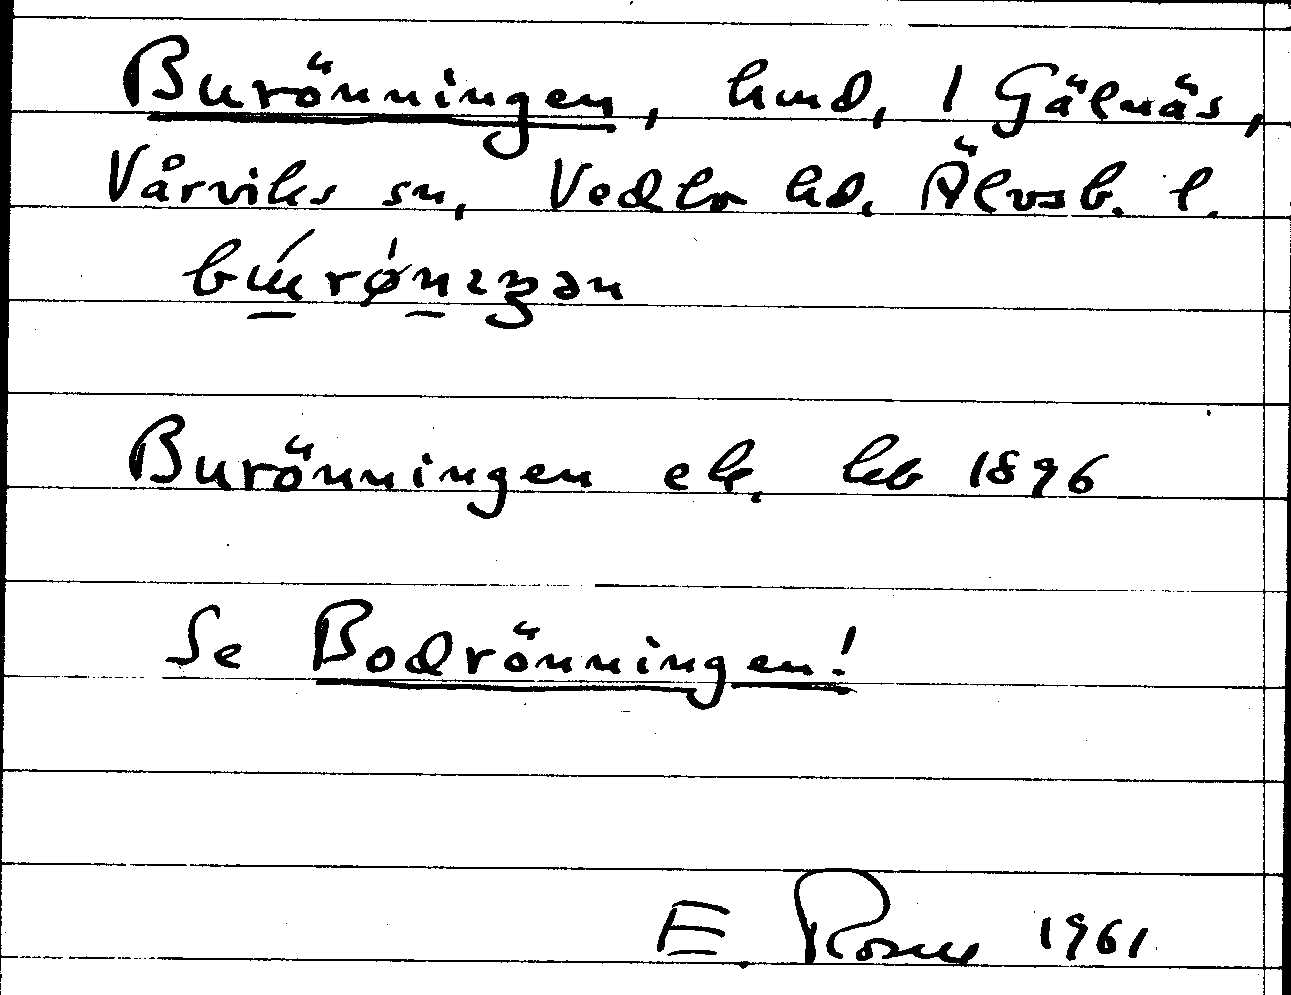 Burönningen, hmd, 1 Gälnäs,
Vårviks sn, Vedbo hd. Älvsb. l.
Burönningen ek. kb 1896
Se Bodrönningen!
E. Rosell 1961